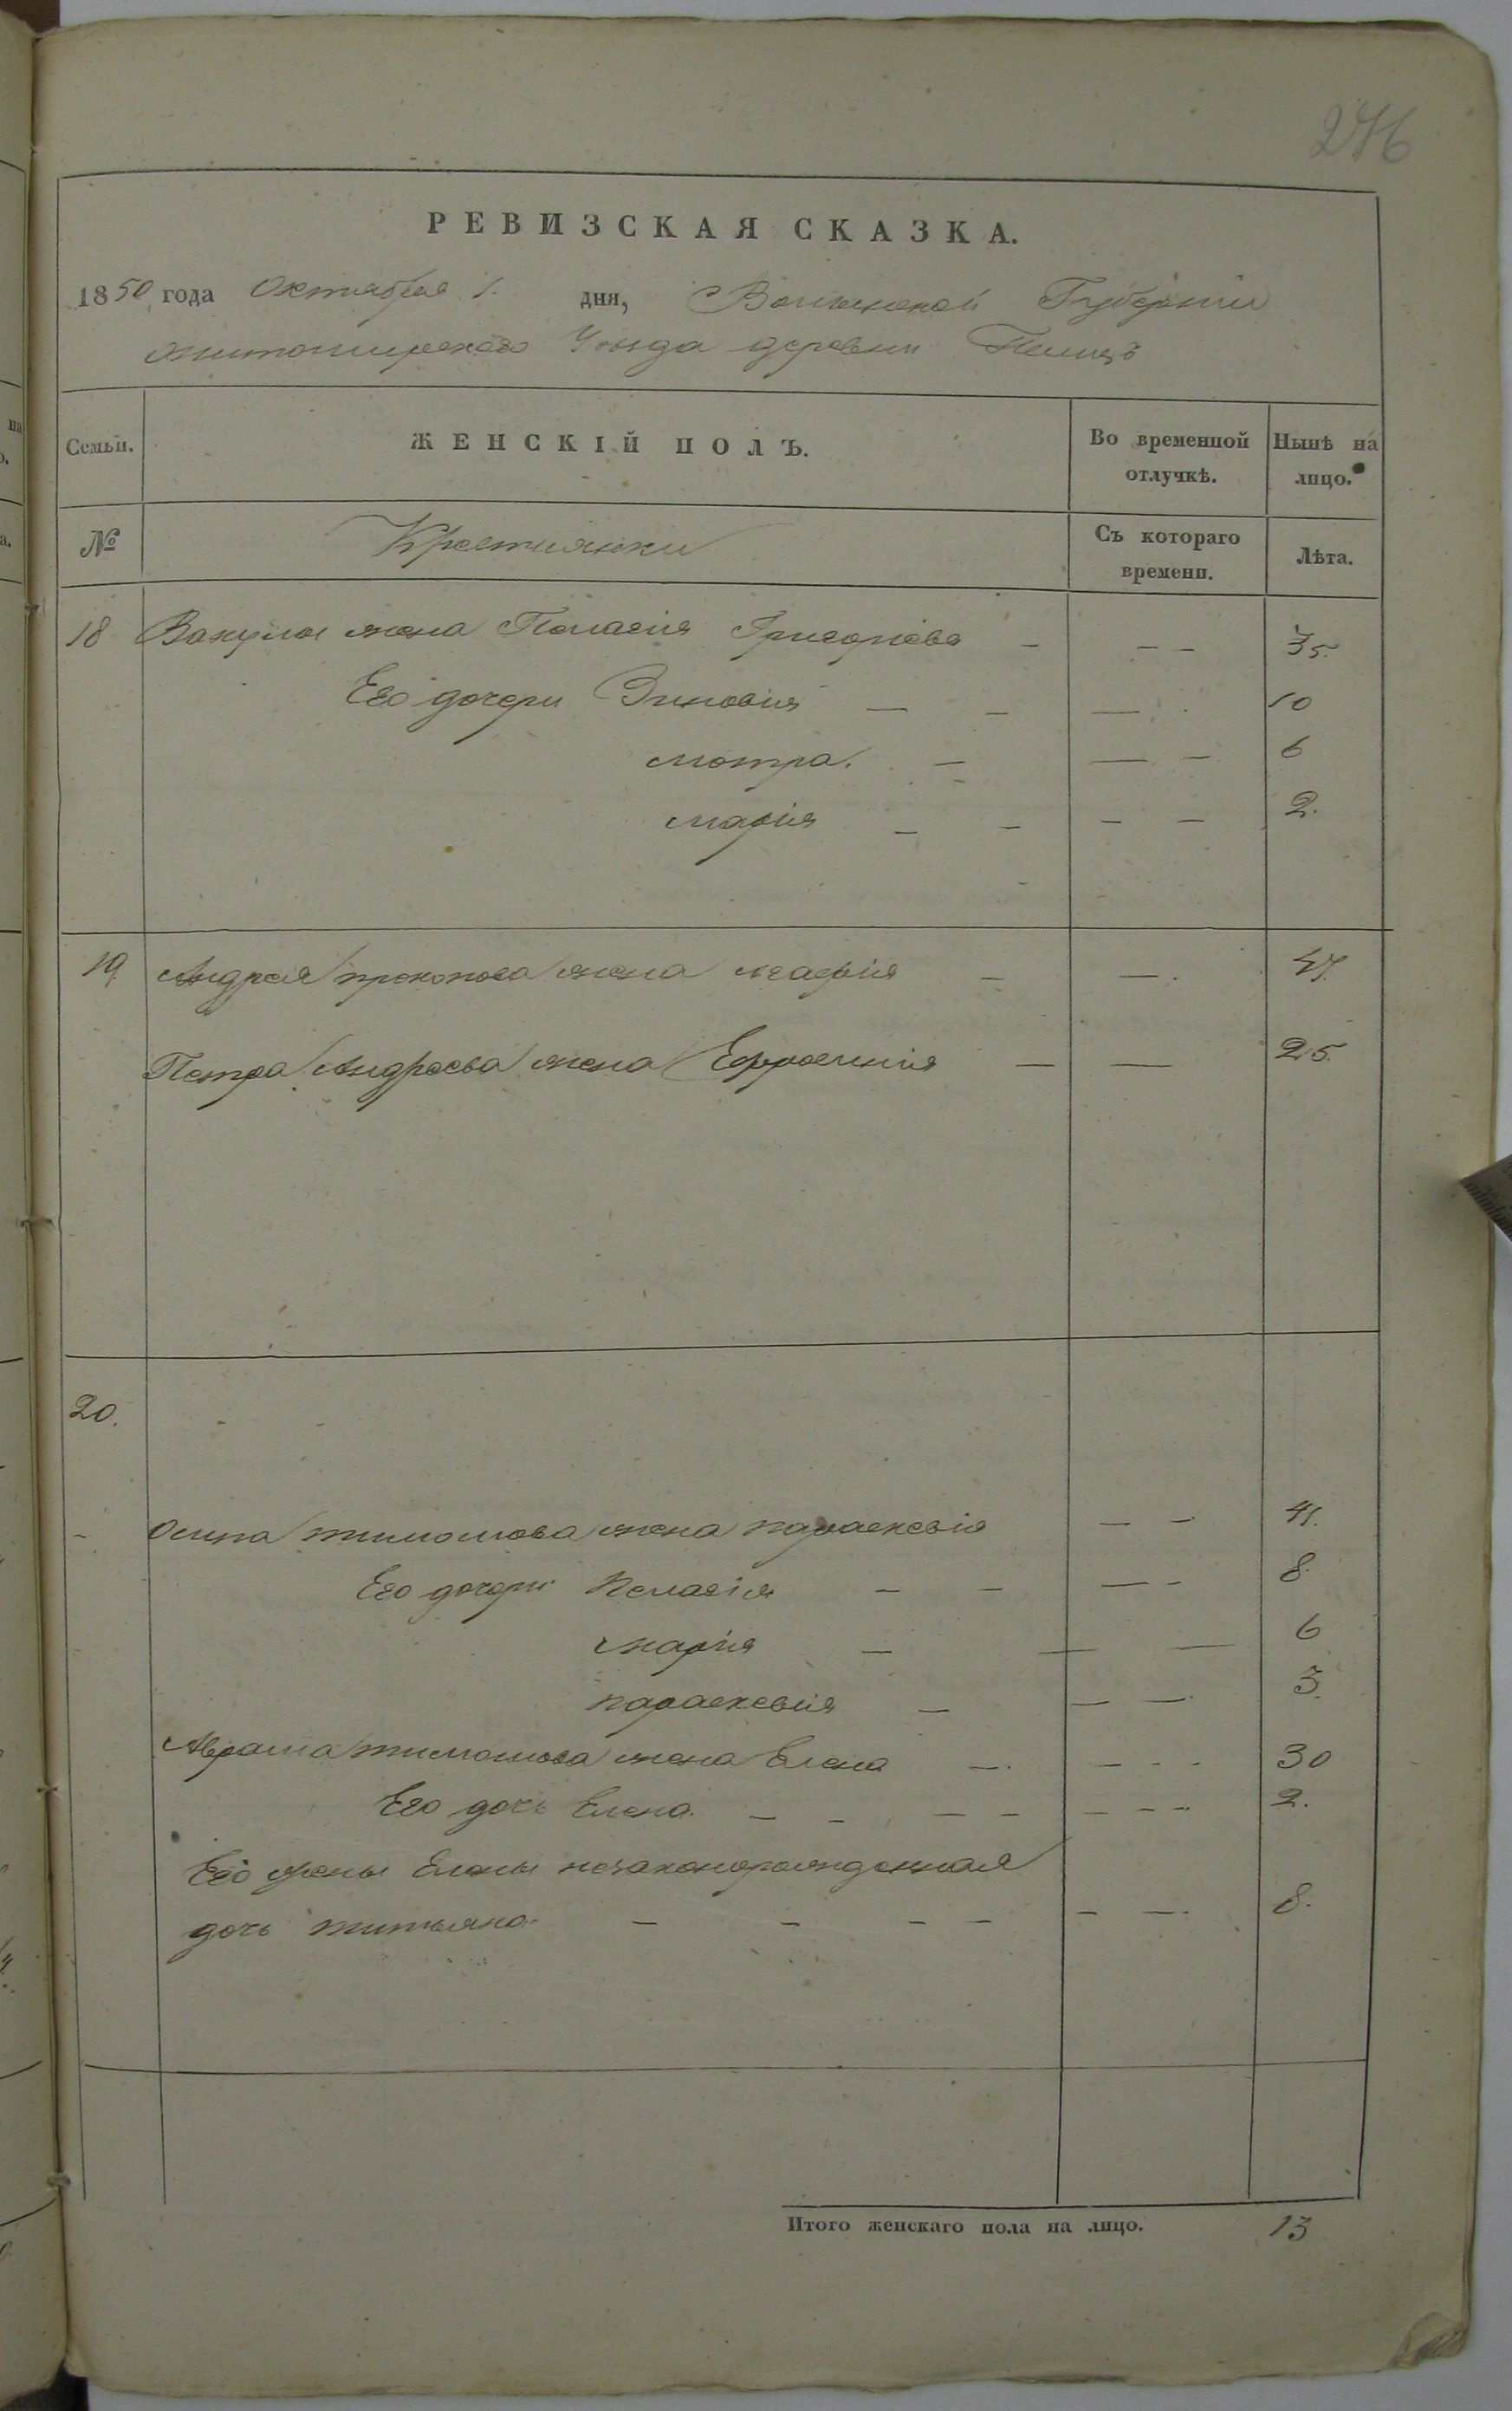 276
РЕВИЗСКАЯ СКАЗКА.
1850 года Октября 1. дня, Волынской Губерніи
житомирскаго Уезда деревни
Семьи. ЖЕНСКІЙ ПОЛЪ. Во временной отлучкѣ. Нынѣ на лицо.
№ Крестиянки Съ котораго времени. Лѣта.
18 Вакулы жена Пелагия Григориева — — — 35.
Его дочери Зиновия — — — 10
мотра. — — — 6
мария — — — — 2.
19 Андрея Прокопова жена мария — — 47.
Петра Андреева жена Ефросиния — — 25.
20.
- Осипа тимошова жена параскевія — — 41.
Его дочери Пелагія — — — - 8.
мария — — — 6
параскевия — — — 3.
Аврама тимошова жена Елена — — - - 30
Его дочь Елена. — - — — — - - 2.
Его жены Елены незаконорожденная
дочь титьяна — - - — - — 8.
Итого женскаго пола на лицо. 13